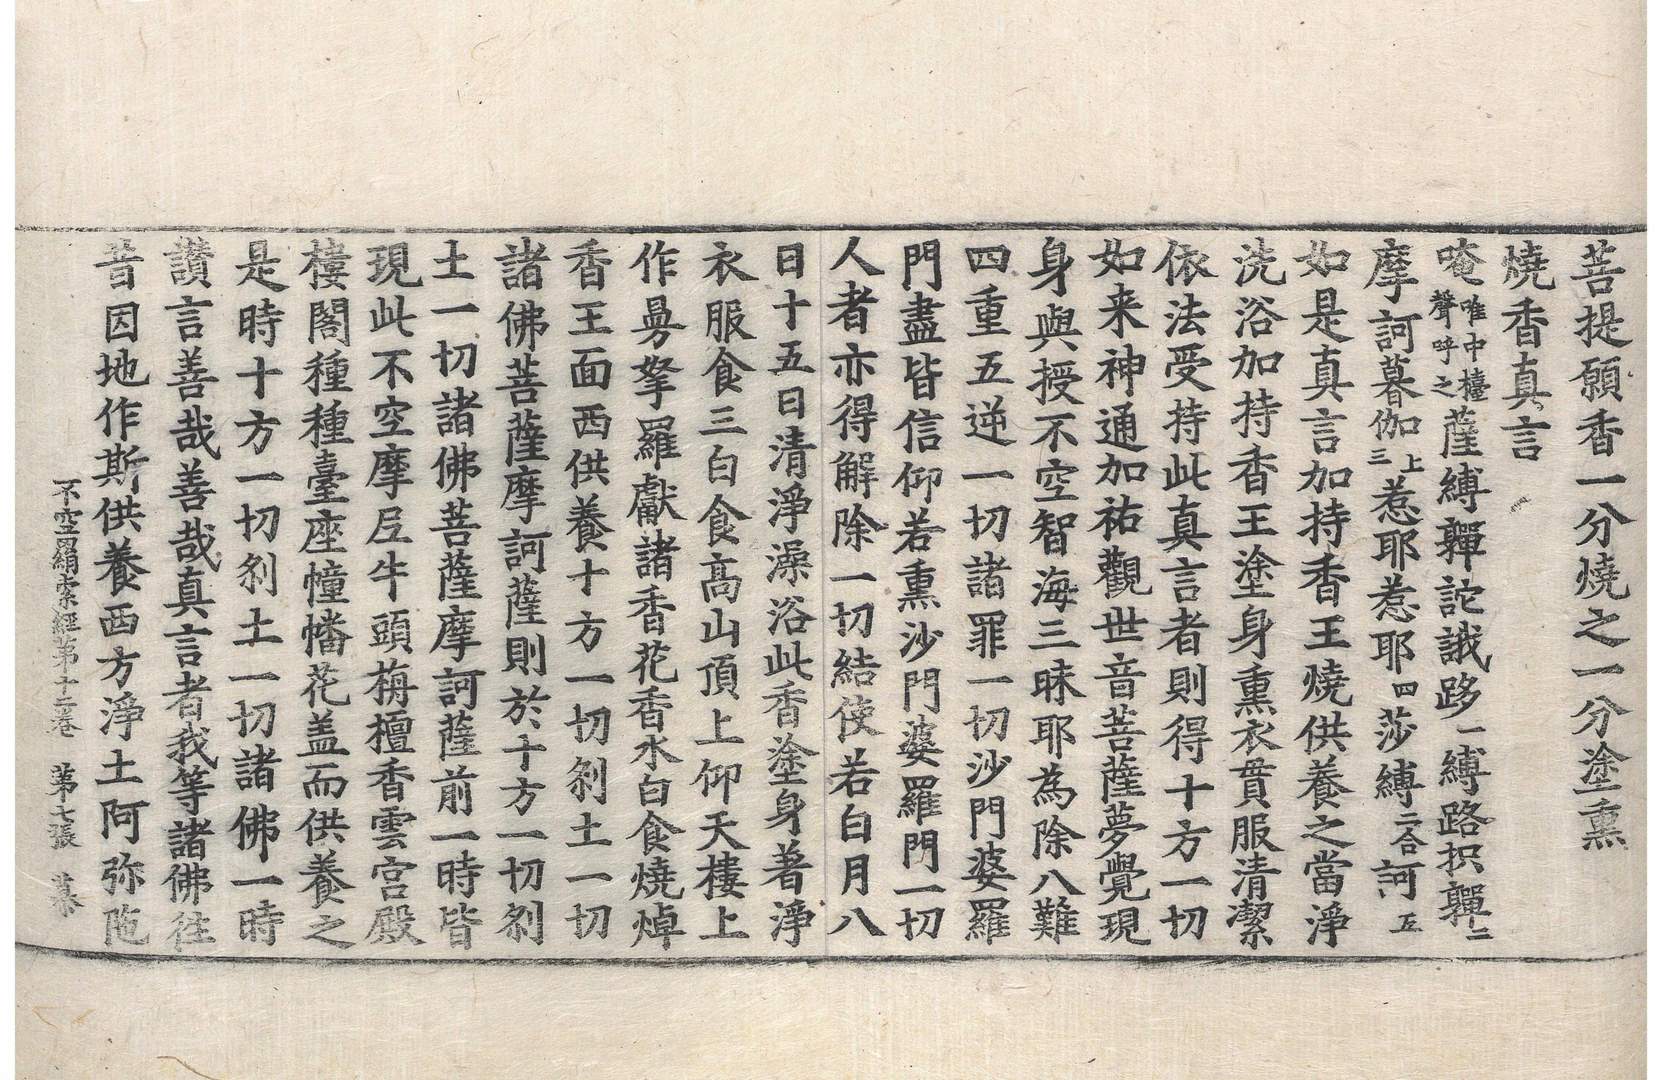 菩提願香一分燒之一分塗熏
燒香真言
唵唯中擡聲呼之薩縛㘓詑誐跢一縛路抧㘓二
摩訶暮伽上三惹耶惹耶四莎縛二合訶五
如是真言加持香王燒供養之當淨
洗浴加持香王塗身熏衣貫服清潔
依法受持此真言者則得十方一切
如来神通加祐觀世音菩薩夢覺現
身與授不空智海三昧耶為除八難
四重五逆一切諸罪一切沙門婆羅
門盡皆信仰若熏沙門婆羅門一切
人者亦得解除一切結使若白月八
日十五日清淨澡浴此香塗身著淨
衣服食三白食高山頂上仰天樓上
作曼拏羅獻諸香花香水白食燒焯
香王面西供養十方一切剎土一切
諸佛菩薩摩訶薩則於十方一切剎
土一切諸佛菩薩摩訶薩前一時皆
現此不空摩尼牛頭栴檀香雲宮殿
樓閣種種臺座幢幡花盖而供養之
是時十方一切剎土一切諸佛一時
讃言善哉善哉真言者我等諸佛往
昔因地作斯供養西方淨土阿弥陁
不空羂索經第十二卷 第七張 慕